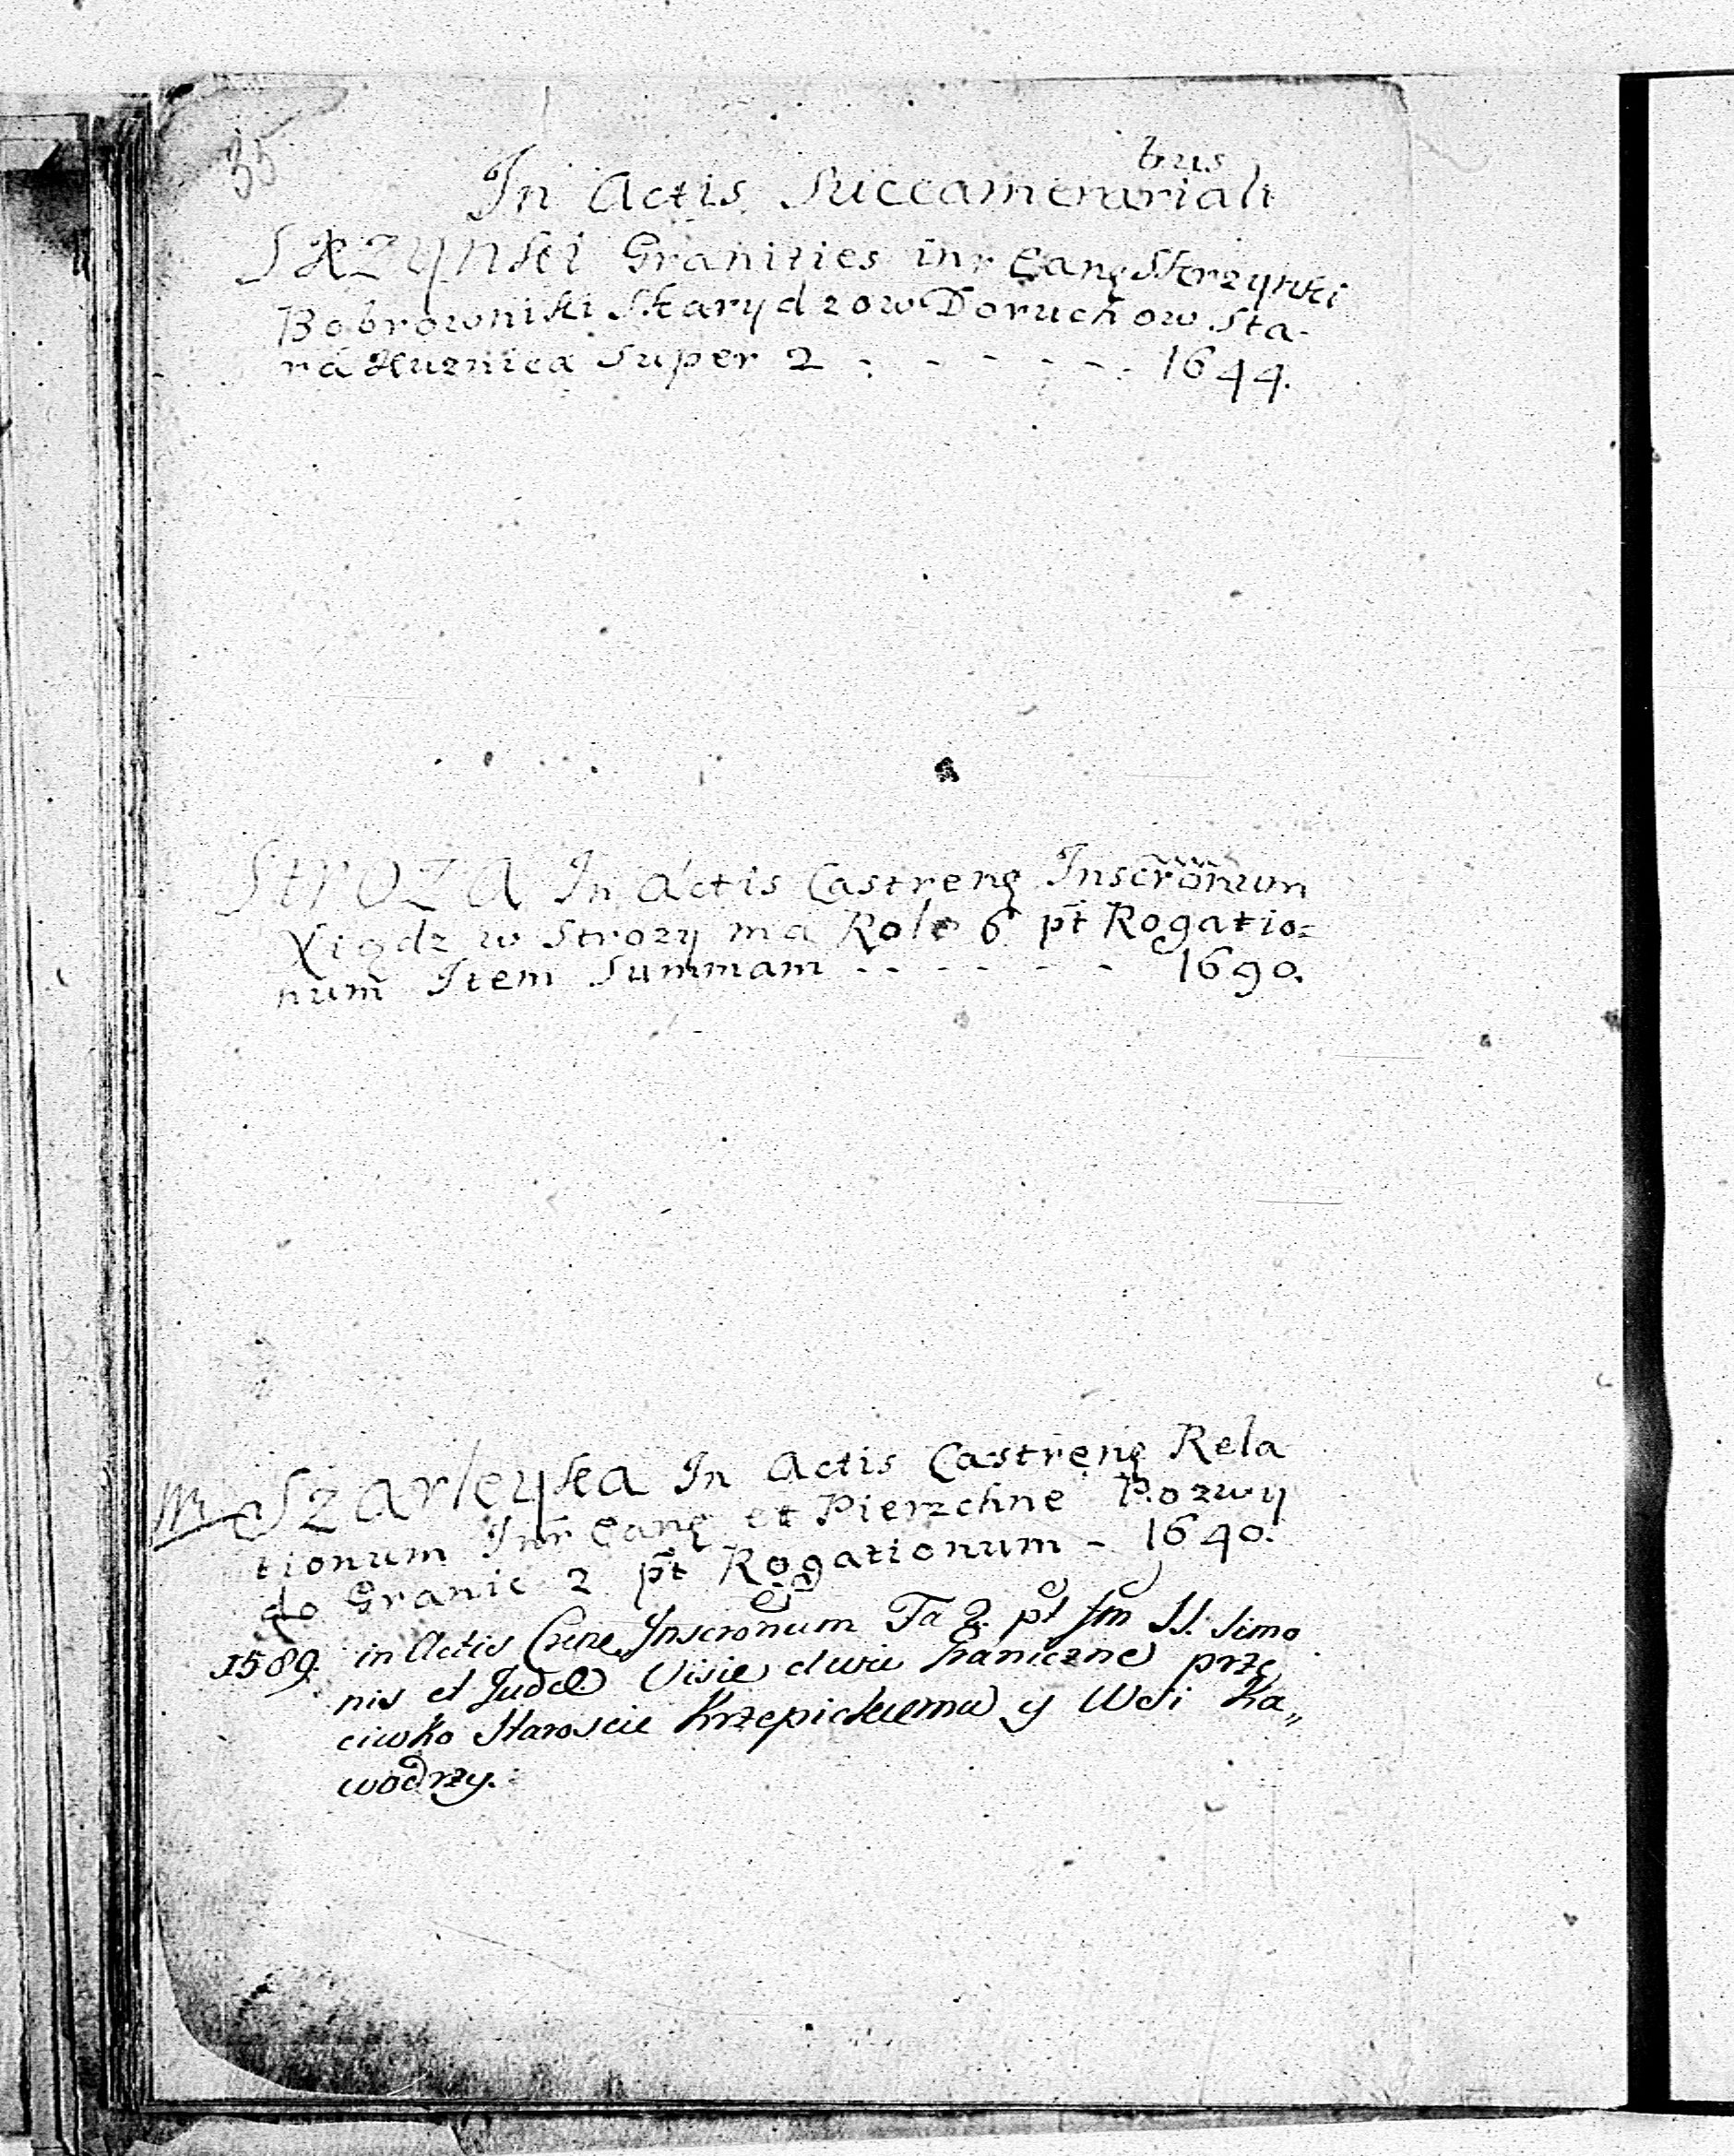 35
bus
In Actis Succamerariali
SKRZYNSKI Granities inr Eanę Skrzynski
Bobrowniki Skarydzow Doruchow Sta-
rá Kuznica Super 2 - - - - - 1644.
STROZA In Actis Castrenę Inscrōnum
Xiądz w Strozy má Role 6 pt Rogatio=
num Item Summam - - - - - - 1690.
Szarleyka In Actis Castrenę Rela
tionum Inr Eanę et Pierzchne Pozwy
do Granic 2 pt Rogationum - 1640.
1589. in Actis Inscronum Fa 2. pt fm SS. Simo
nis et Judæ Visie dwie Graniczne prze
ciwko Staroscie Krzepickiemu y Wsi Ka„
wodrzy.